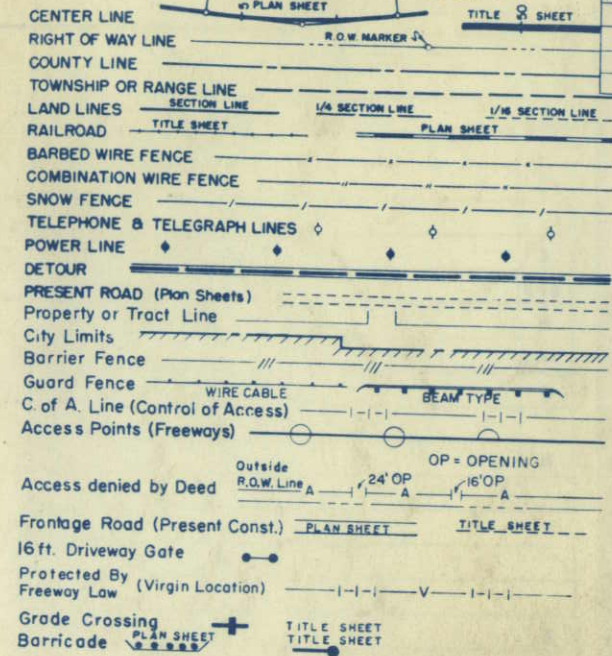 CENTER LINE 5 PLAN SHEET TITLE 50 SHEET
RIGHT OF WAY LINE R.O.W. MARKER
COUNTY LINE
TOWNSHIP OR RANGE LINE
LAND LINES SECTION LINE 1/4 SECTION LINE 1/16 SECTION LINE
RAILROAD TITLE SHEET PLAN SHEET
BARBED WIRE FENCE
COMBINATION WIRE FENCE
SNOW FENCE
TELEPHONE & TELEGRAPH LINES
POWER LINE
DETOUR
PRESENT ROAD (Plan Sheets)
Property or Tract Line
City Limits
Barrier Fence
Guard Fence WIRE CABLE BEAM TYPE
C. of A. Line (Control of Access)
Access Points (Freeways)
OP = OPENING
Access denied by Deed Outside
R.O.W. Line A 24' OP A 16' OP A
Frontage Road (Present Const.) PLAN SHEET TITLE SHEET
16 ft. Driveway Gate
Protected By
Freeway Law (Virgin Location) V
Grade Crossing TITLE SHEET
Barricade PLAN SHEET TITLE SHEET